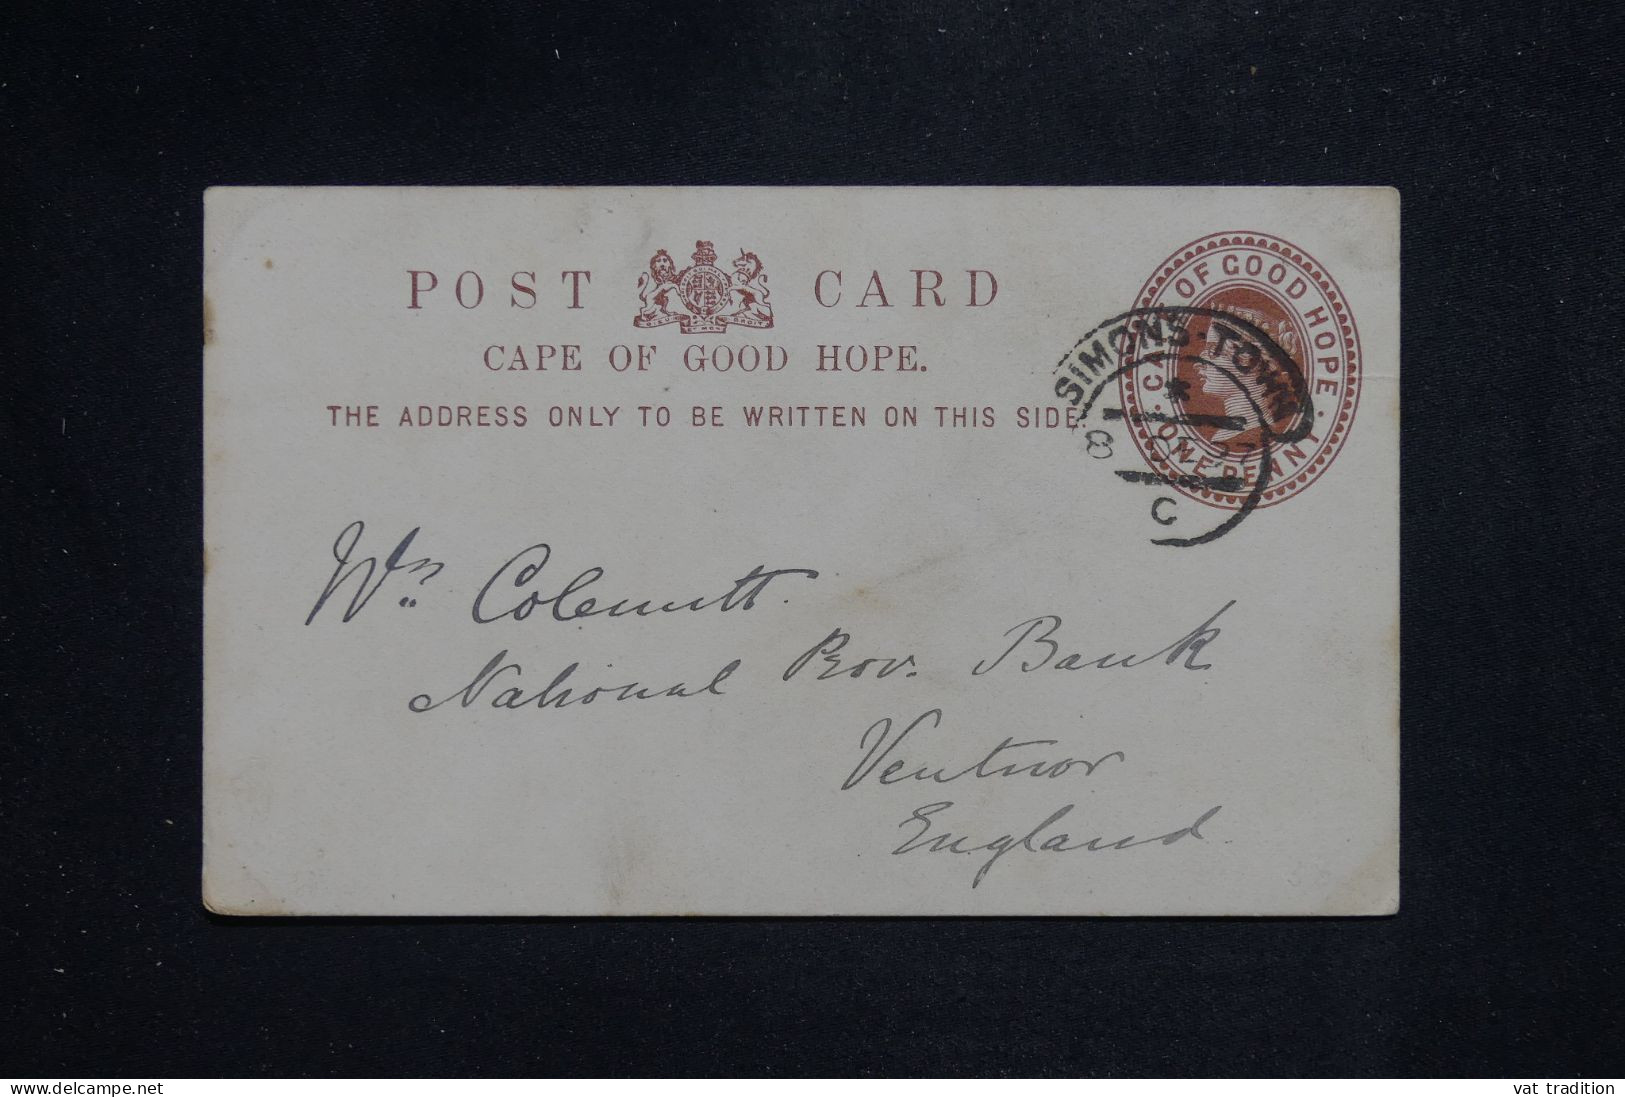 POST CARD
CAPE OF GOOD HOPE.
THE ADDRESS ONLY TO BE WRITTEN ON THIS SIDE.
CAPE OF GOOD HOPE.
ONE PENNY
SIMONS-TOWN
C
Wm
National Prov. Bank
Ventnor
England
www.delcampe.net
vat tradition